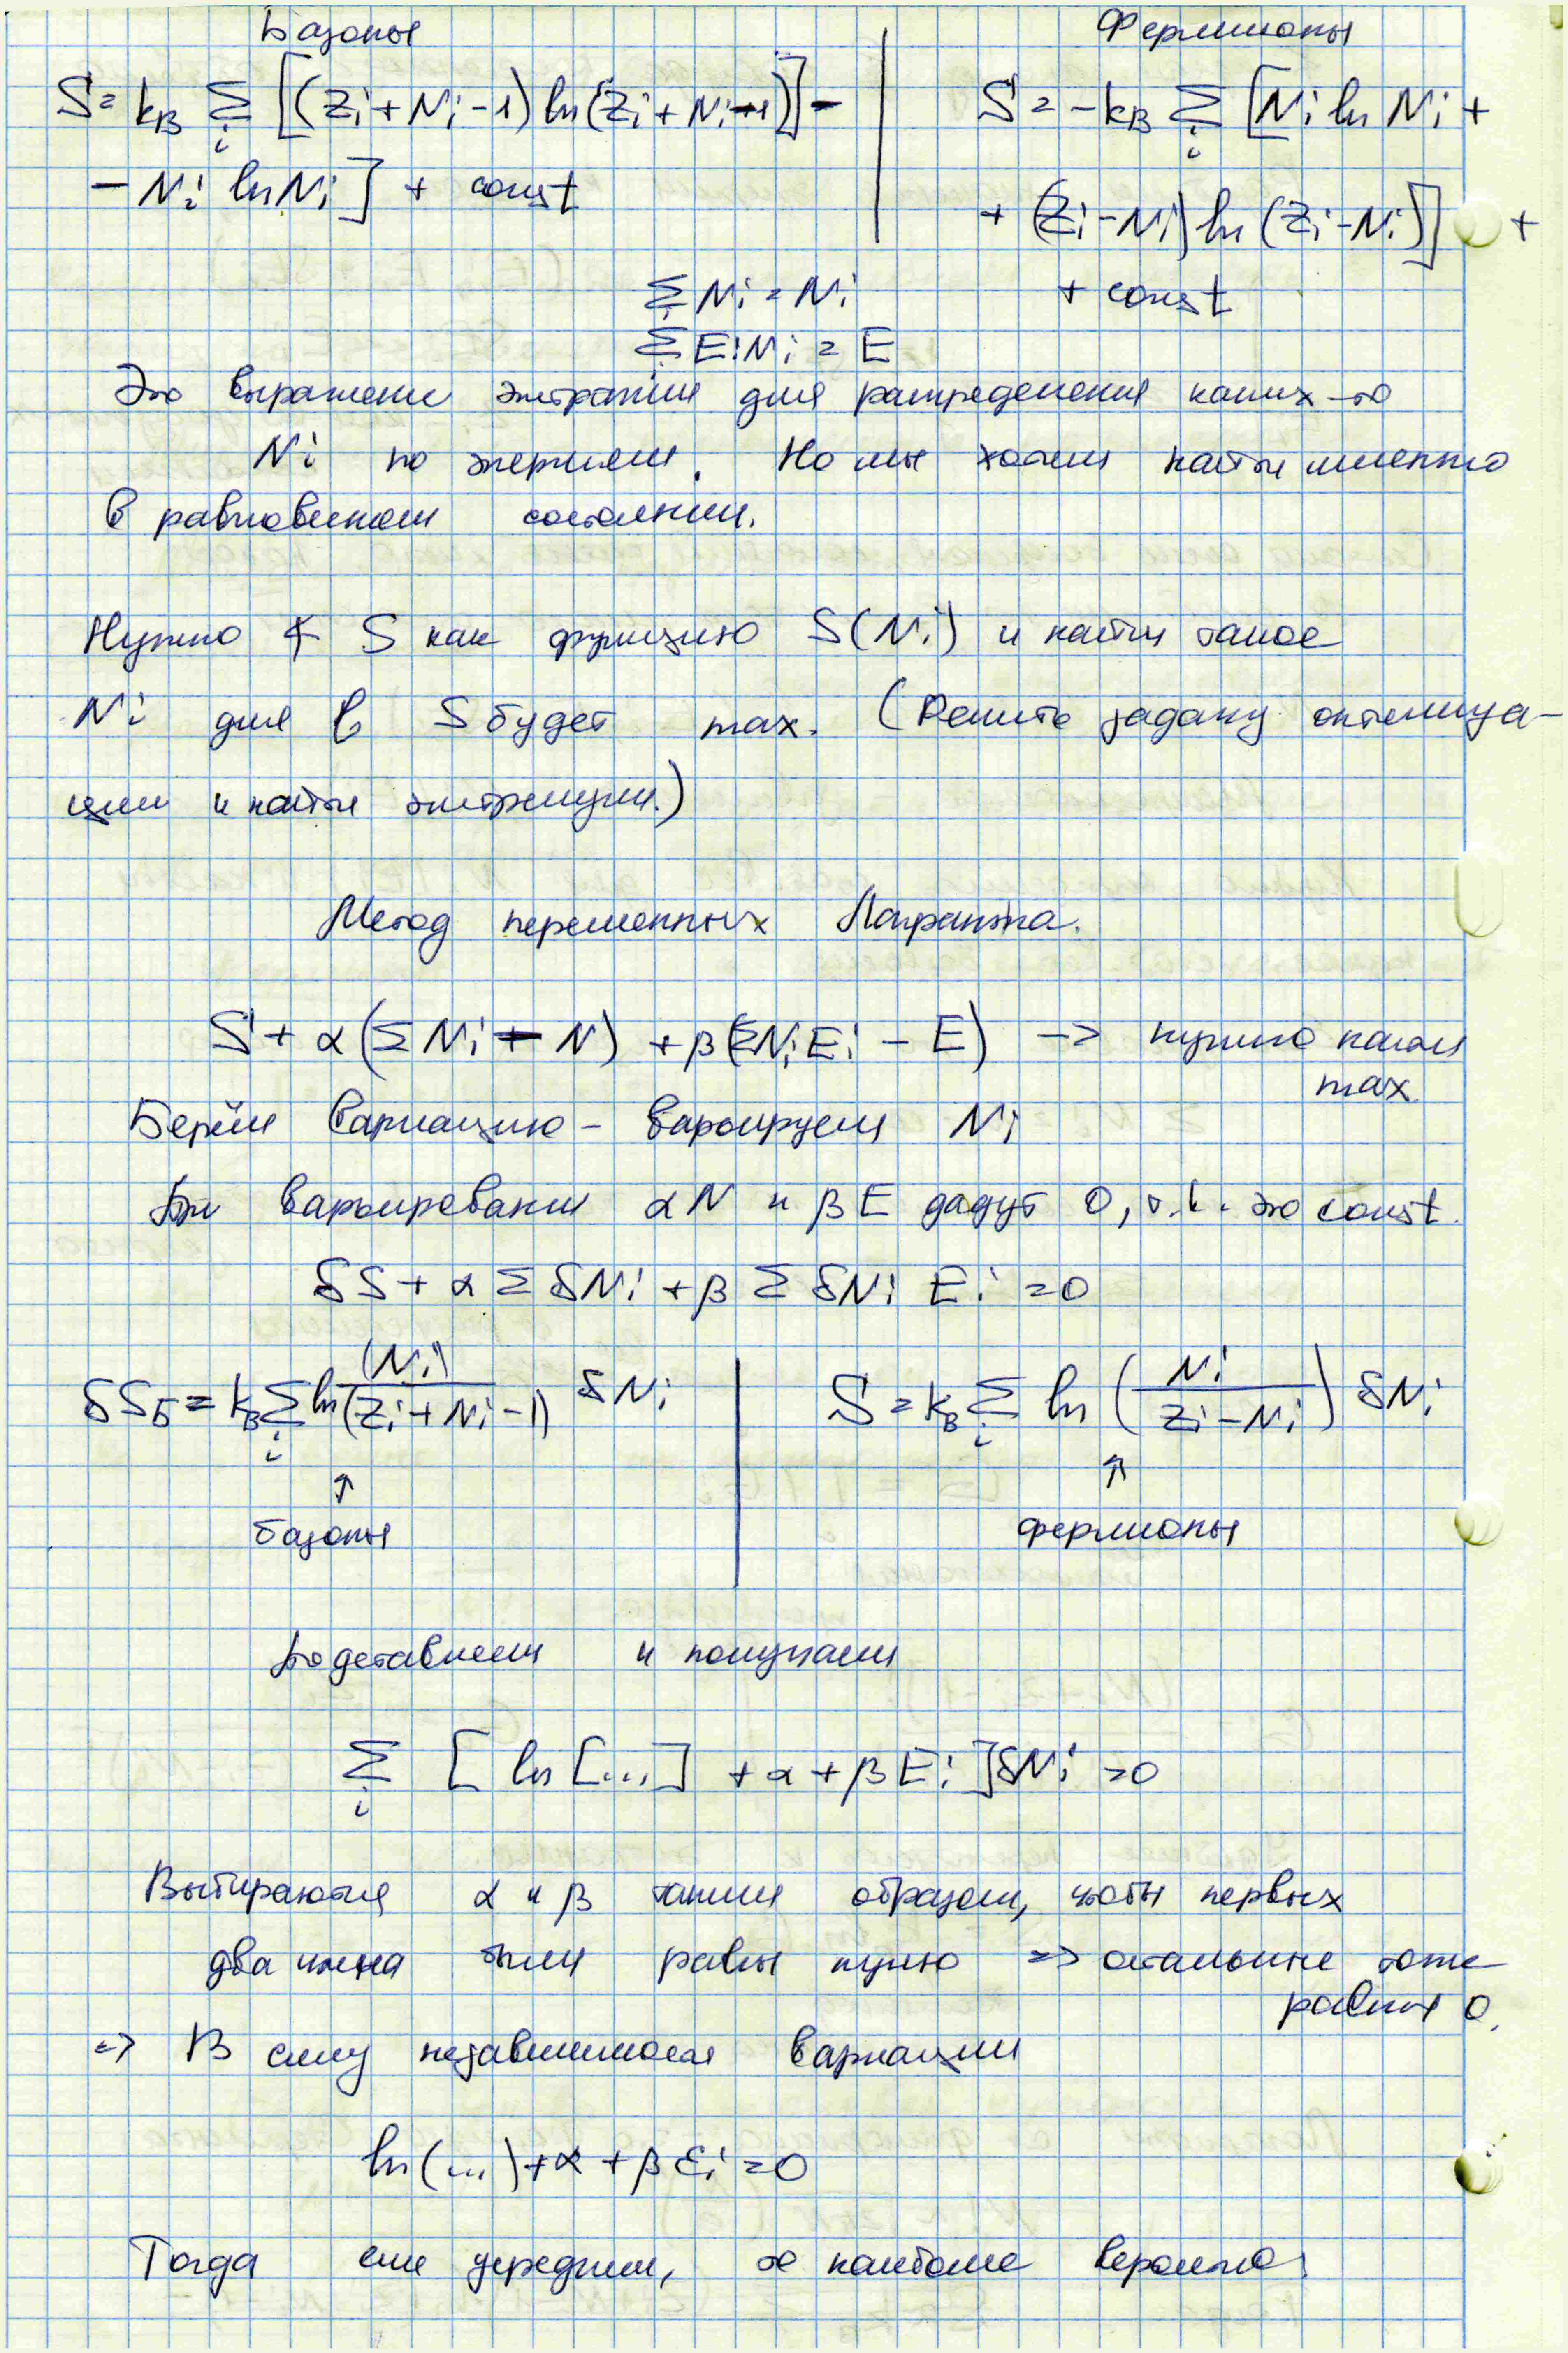 Базоны
S = k_B Σ_i [(Z_i + N_i - 1) ln(Z_i + N_i - 1)] -
- N_i ln N_i] + const
Фермионы
S = -k_B Σ_i [N_i ln N_i +
+ (Z_i - N_i) ln (Z_i - N_i)] +
+ const
Σ N_i = N_i
Σ E_i N_i = E
Это выражение энтропии для распределения каких-то
N_i по энергиям. Но мы хотим найти именно
в равновесном состоянии.
Нужно ∢ S как функцию S(N_i) и найти такое
N_i для S будет max. (Решить задачу оптимиза-
ции и найти экстремум.)
Метод переменных Лагранжа.
S + α(Σ N_i - N) + β(Σ N_i E_i - E) -> нужно найти
max.
Берём вариацию - варьируем N_i
При варьировании αN и βE дадут 0, т.к. это const.
δS + α Σ δN_i + β Σ δN_i E_i = 0
δS_Б = k_B Σ_i ln (N_i)/(Z_i + N_i - 1) δN_i
↑
базоны
S = k_B Σ_i ln (N_i / (Z_i - N_i)) δN_i
↑
фермионы
Подставляем и получаем
Σ_i [ln [...] + α + β E_i] δN_i = 0
Выбираются α и β таким образом, чтобы первых
два члена были равны нулю => остальные тоже
равны 0.
=> В силу независимости вариации
ln(...) + α + β ε_i = 0
Тогда если усредним, то наиболее вероятно